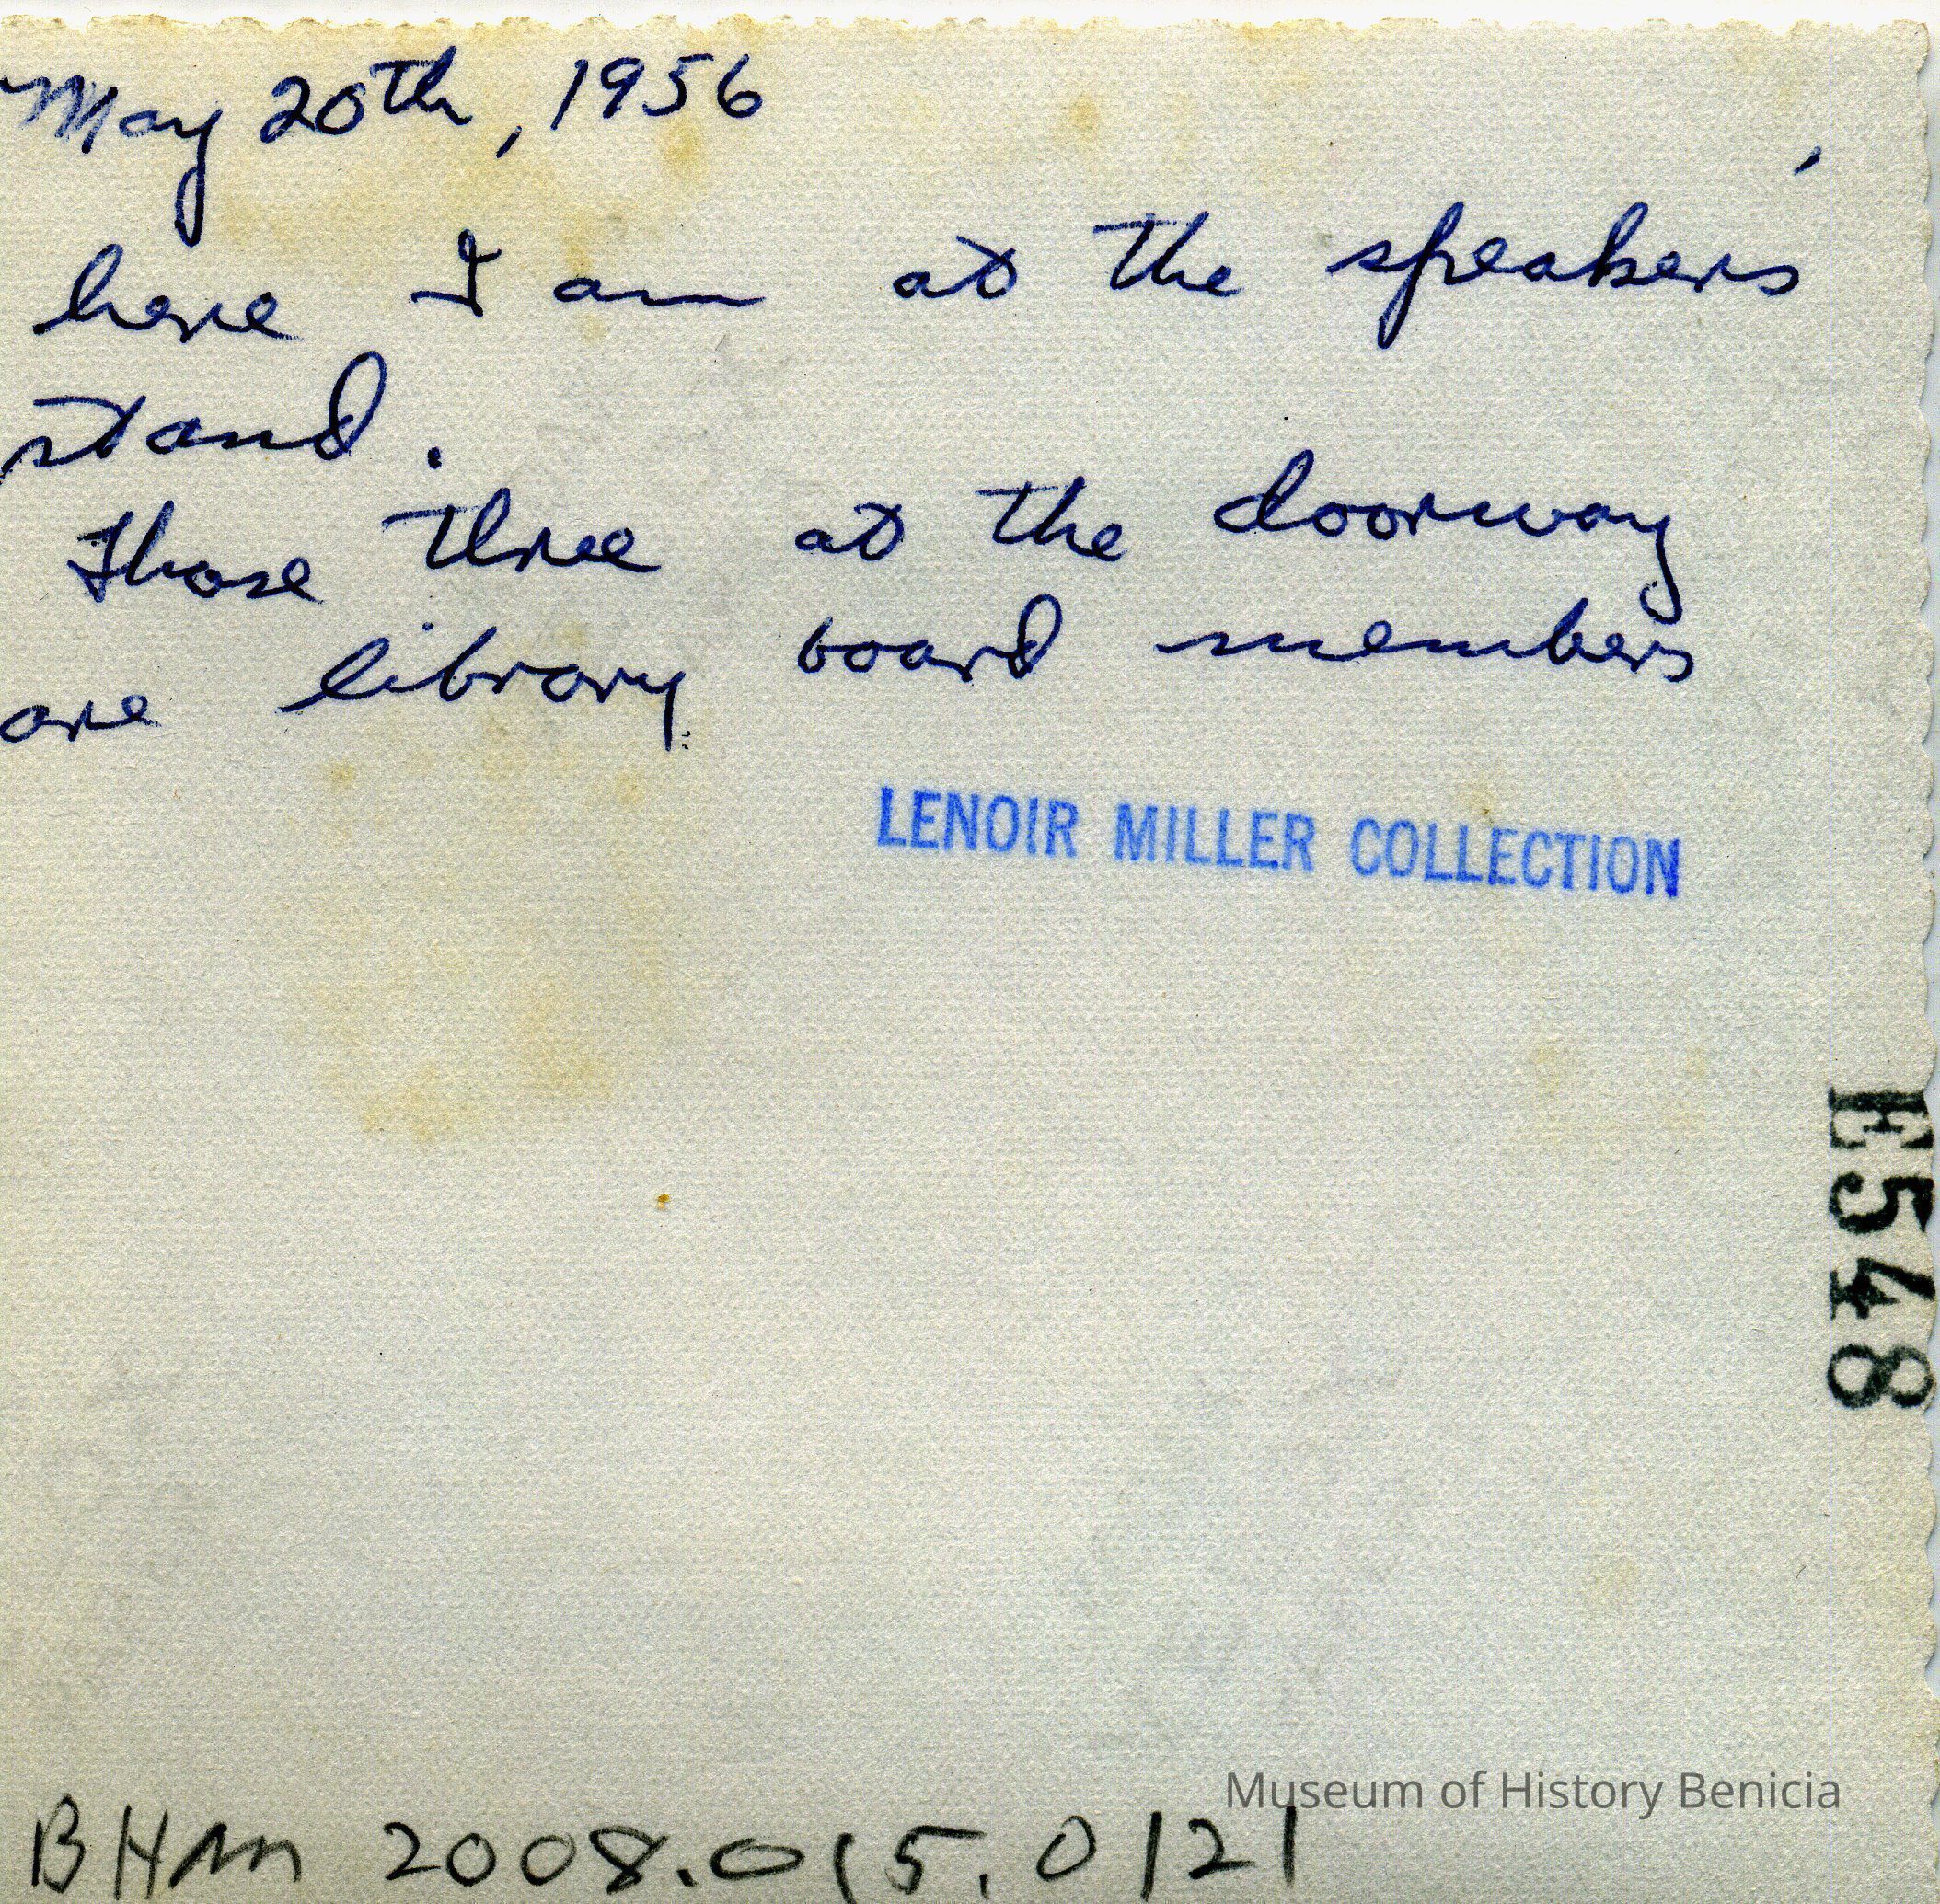 May 20th, 1956
here I am at the speakers'
stand.
Those three at the doorway
are library board members
LENOIR MILLER COLLECTION
E548
Museum of History Benicia
BHM 2008.015.0121